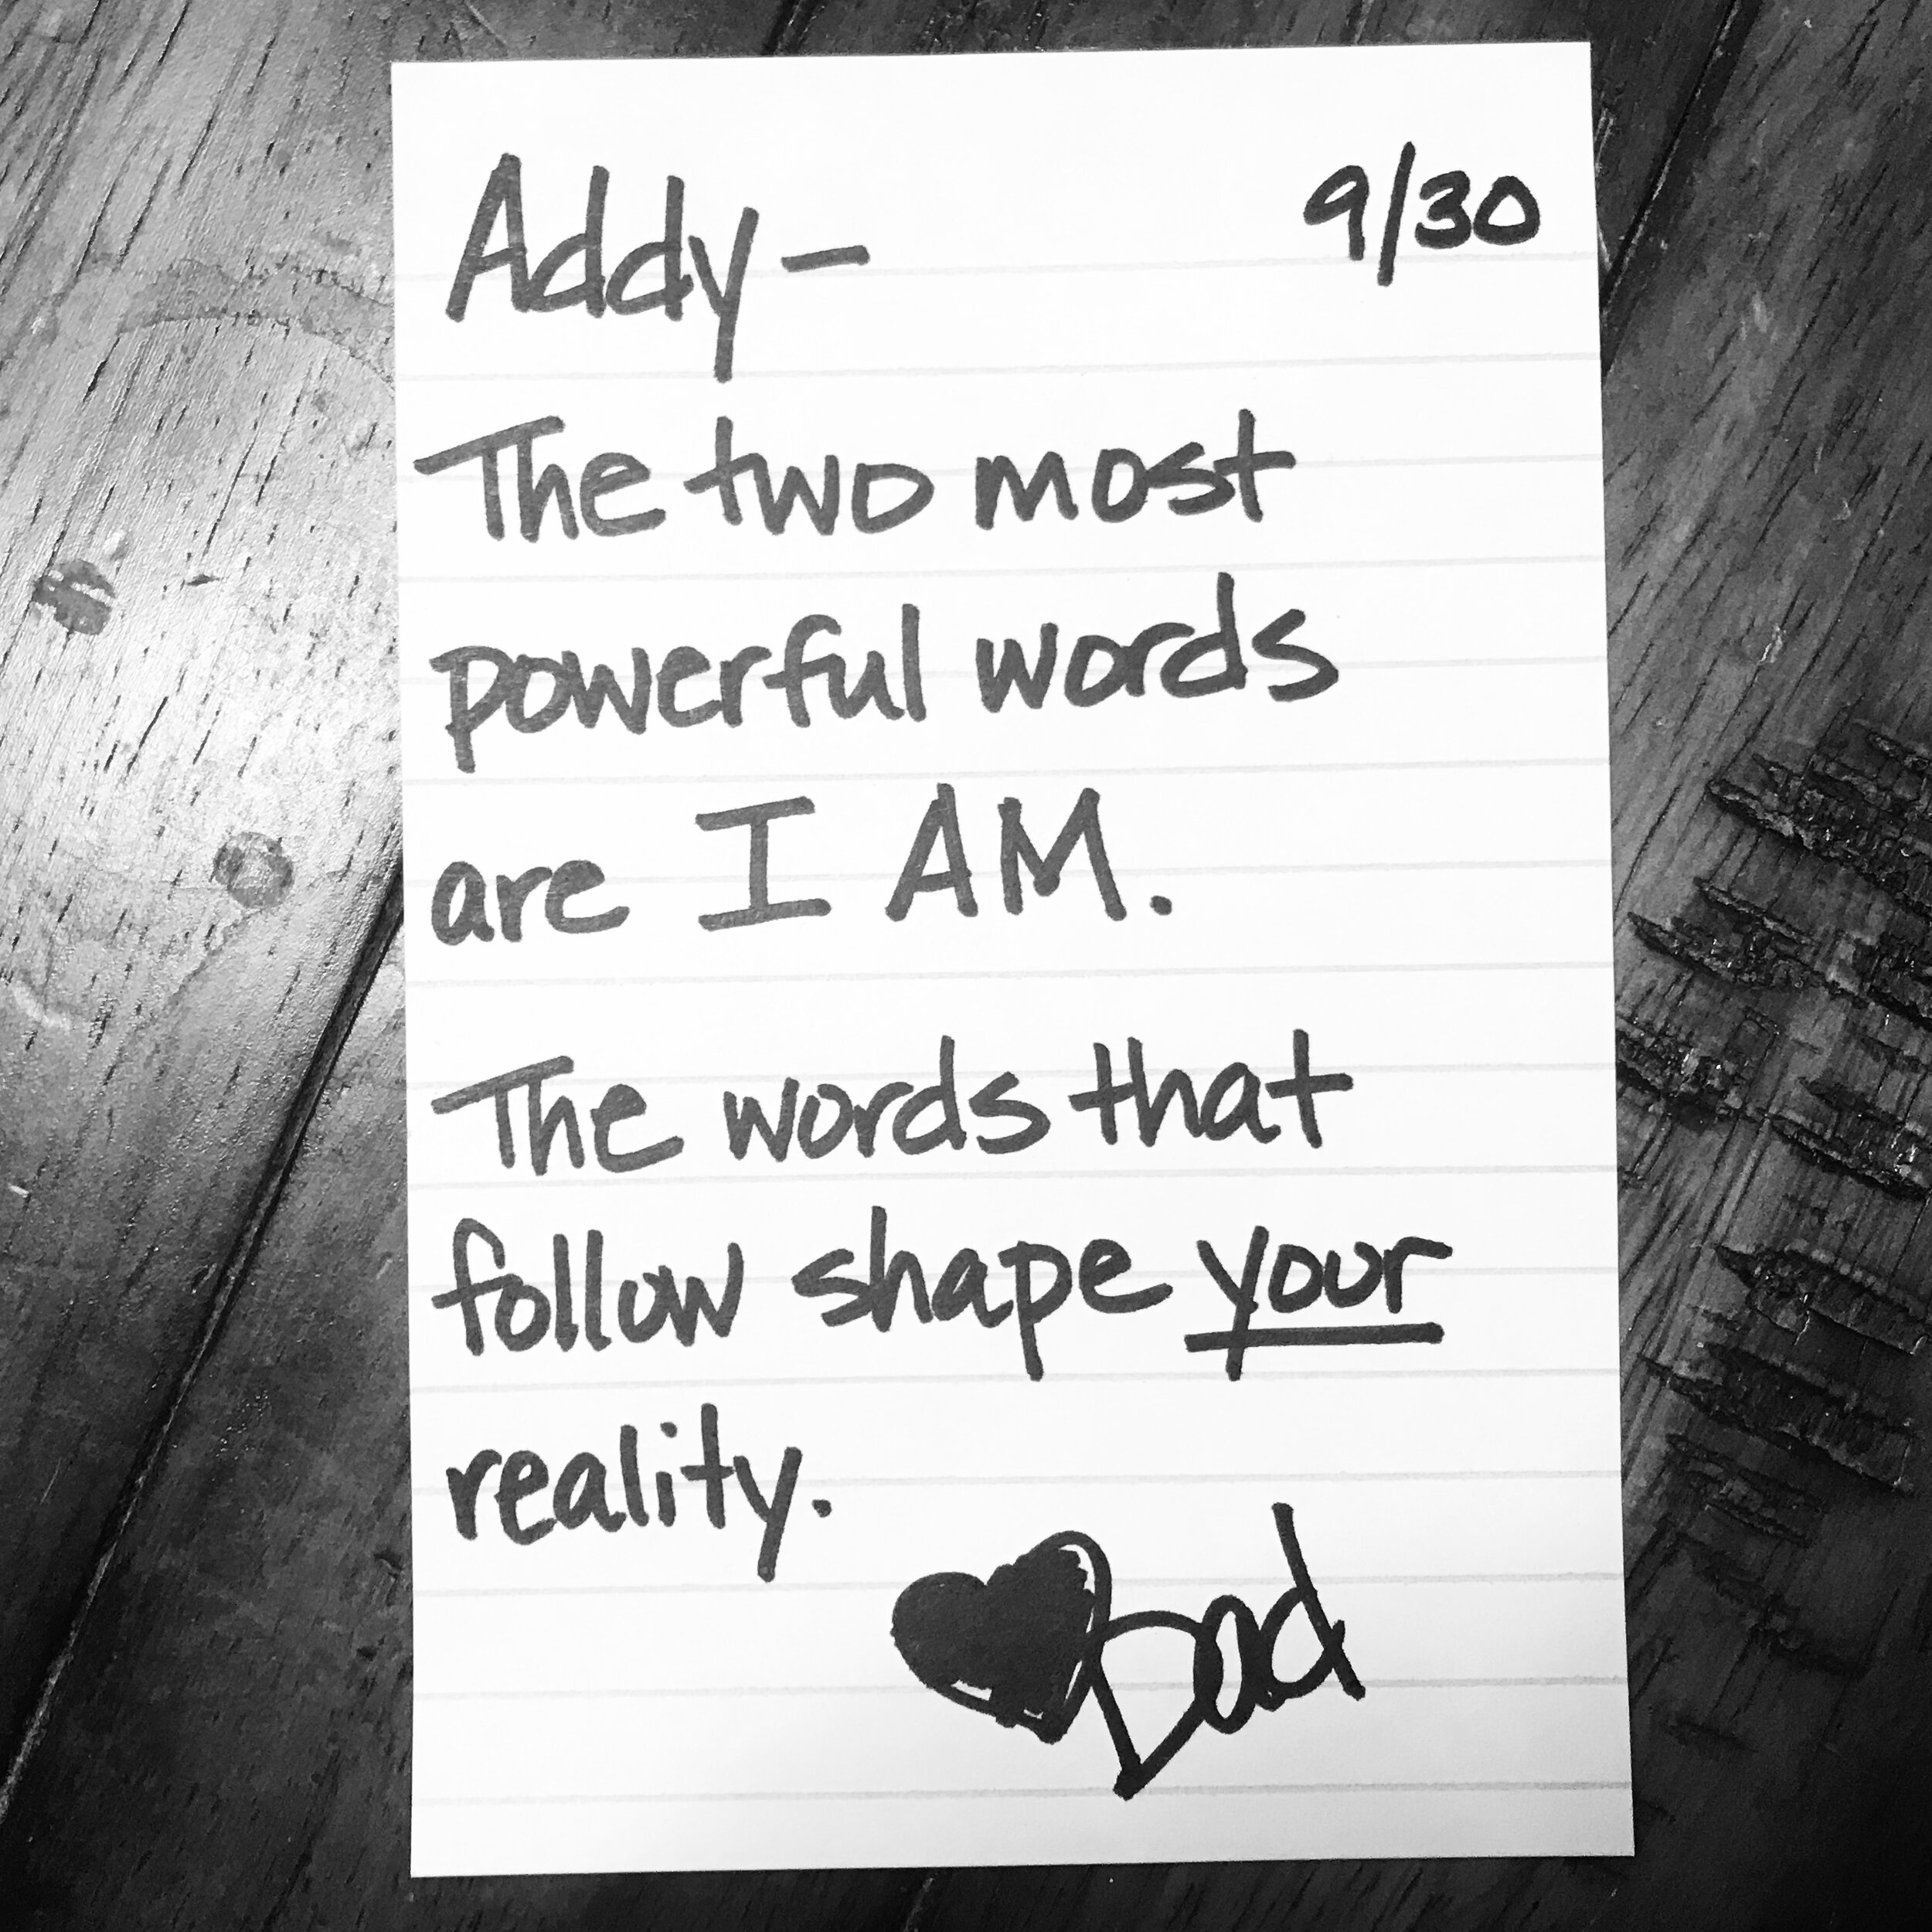 Addy- 9/30
The two most
powerful words
are I AM.
The words that
follow shape your
reality.
Dad